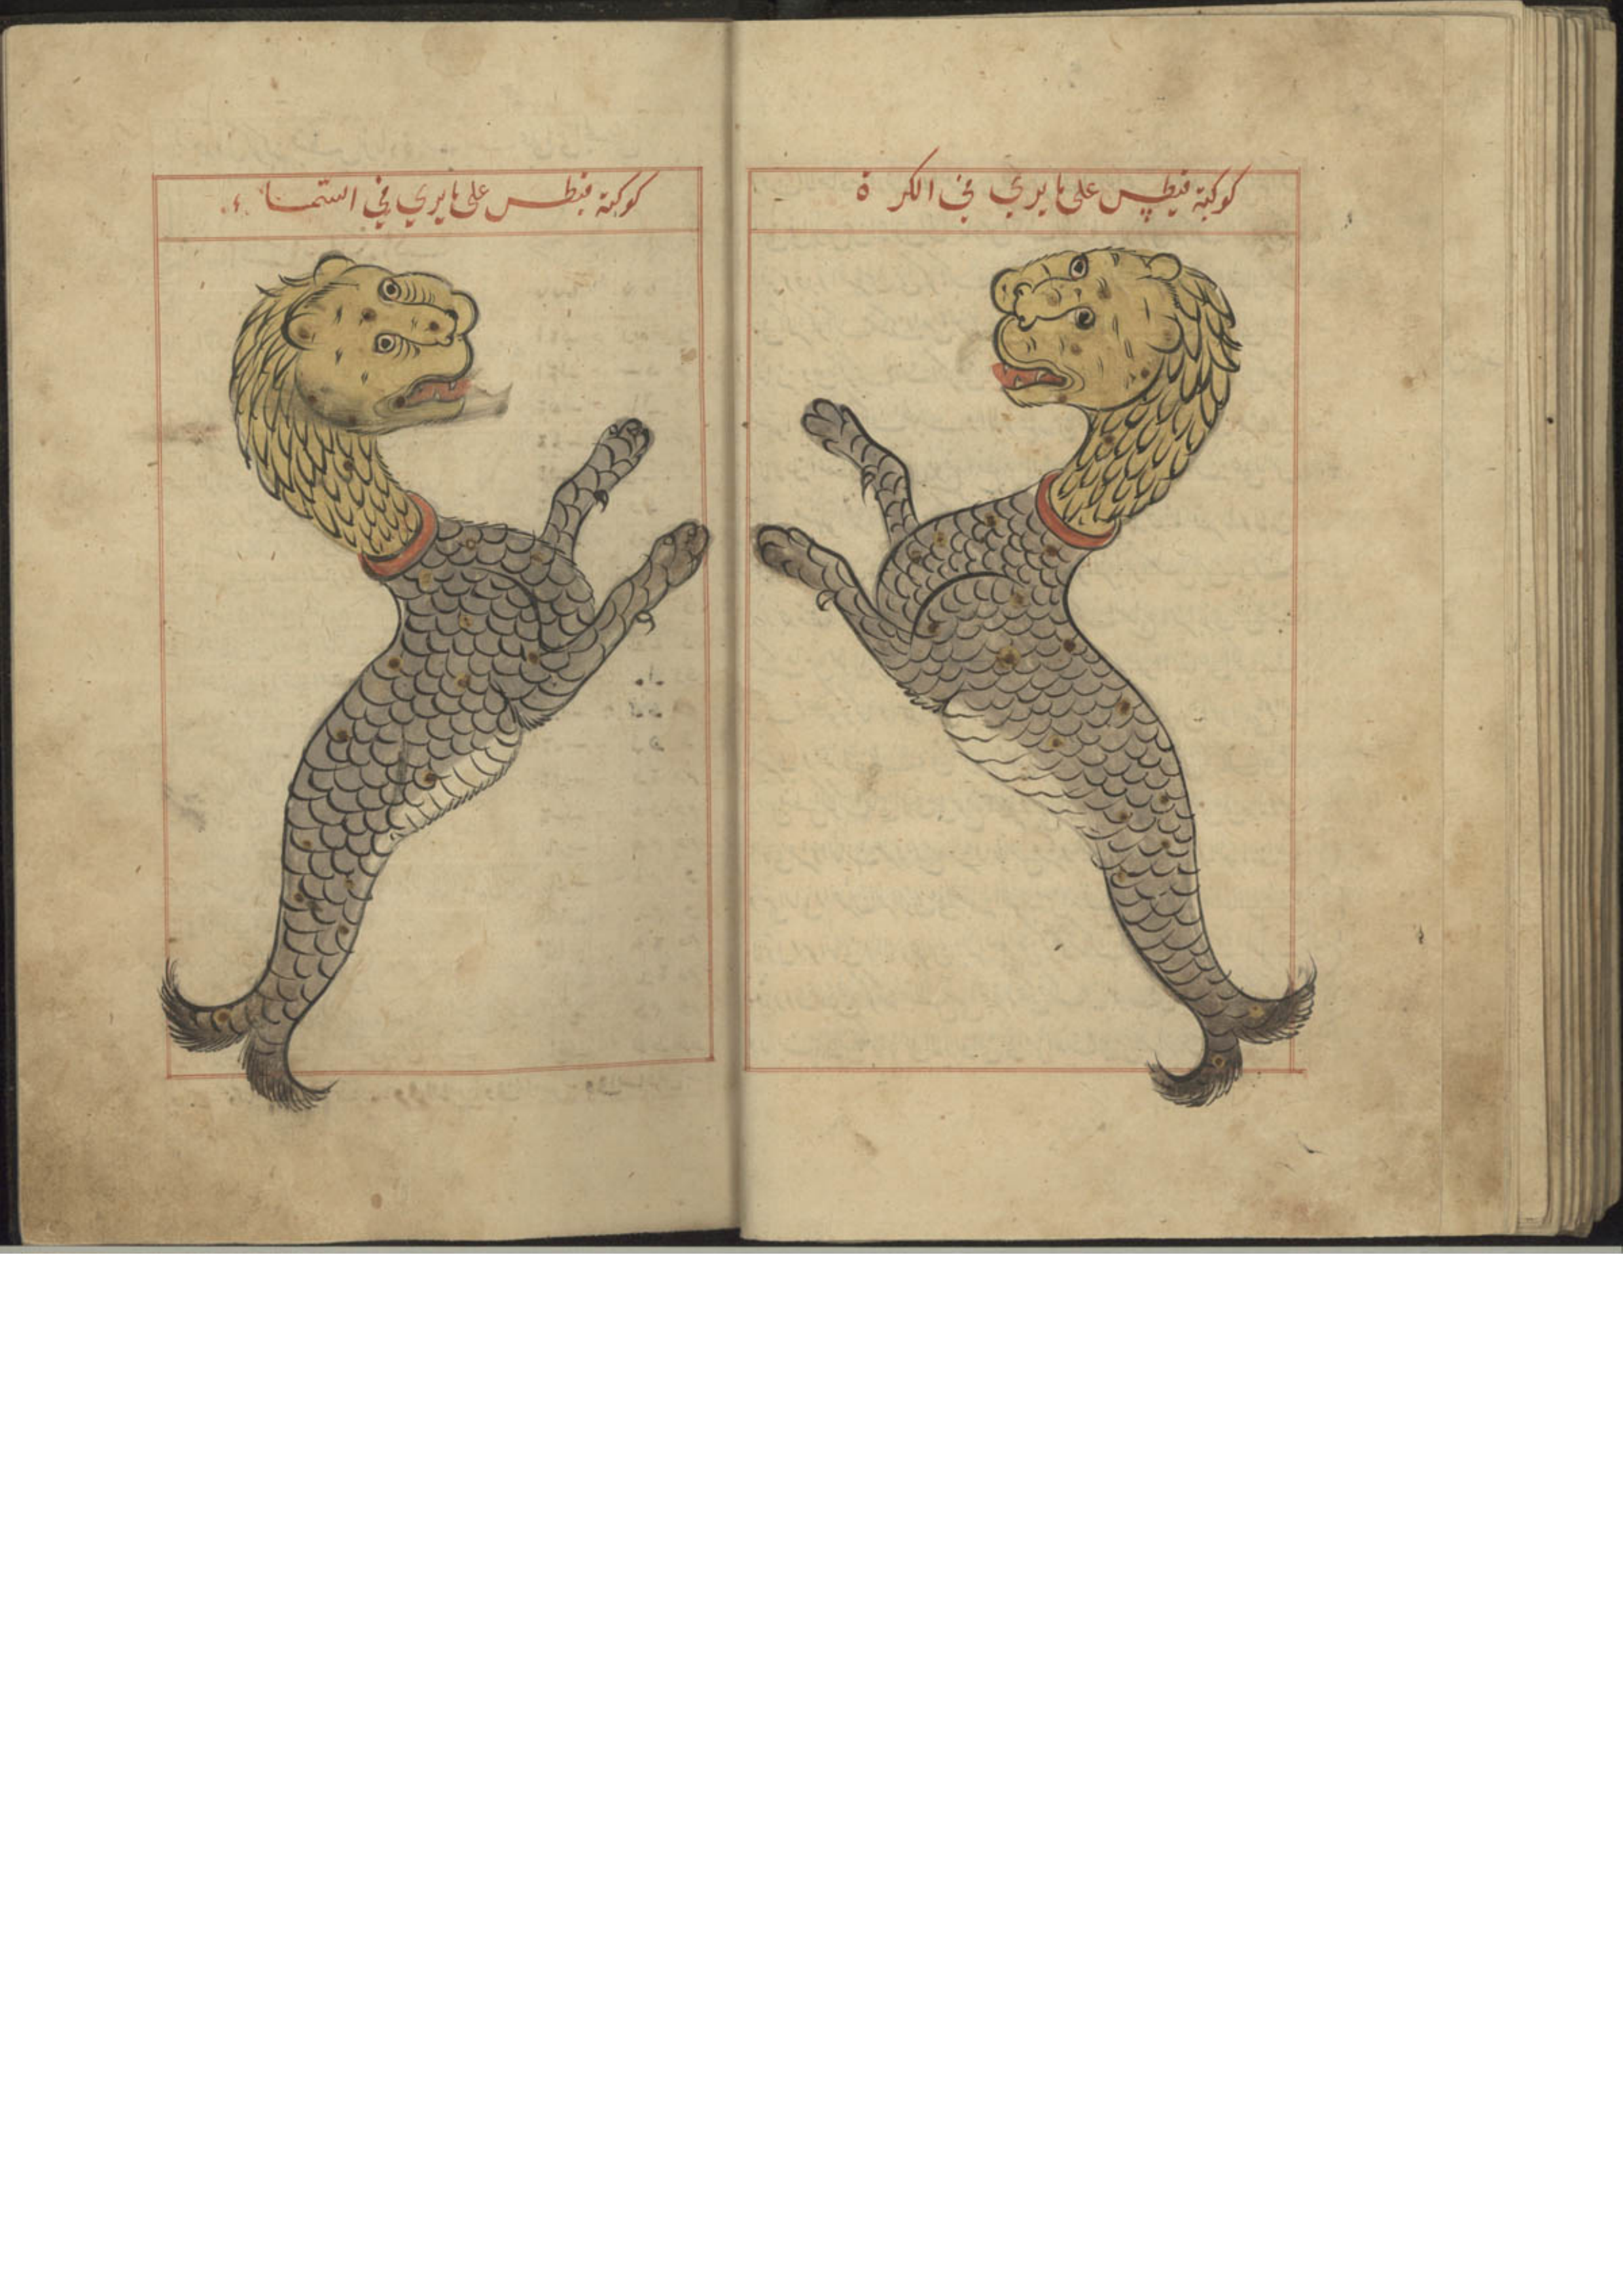 كوكبة قيطس على ما يرى في الكرة
كوكبة قيطس على ما يرى في السماء